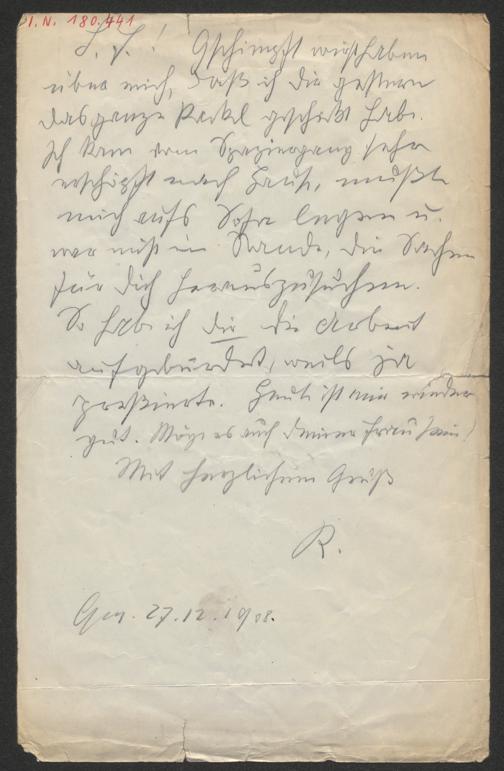 I.N. 180.441
L. F.! Gschimpft wirst haben
über mich, daß ich dir gestern
das ganze Packl geschickt habe.
Ich kam vom Spaziergang sehr
erschöpft nach Haus, mußte
mich aufs Sofa legen u.
war nicht im Stande, die Sachen
für Dich herauszusuchen.
So habe ich dir die Arbeit
aufgebürdet, weils ja
pressierte. Heute ist mir wieder
gut. Möge es auch Deiner Frau sein!
Mit herzlichem Gruß
R.
27.12.1908.